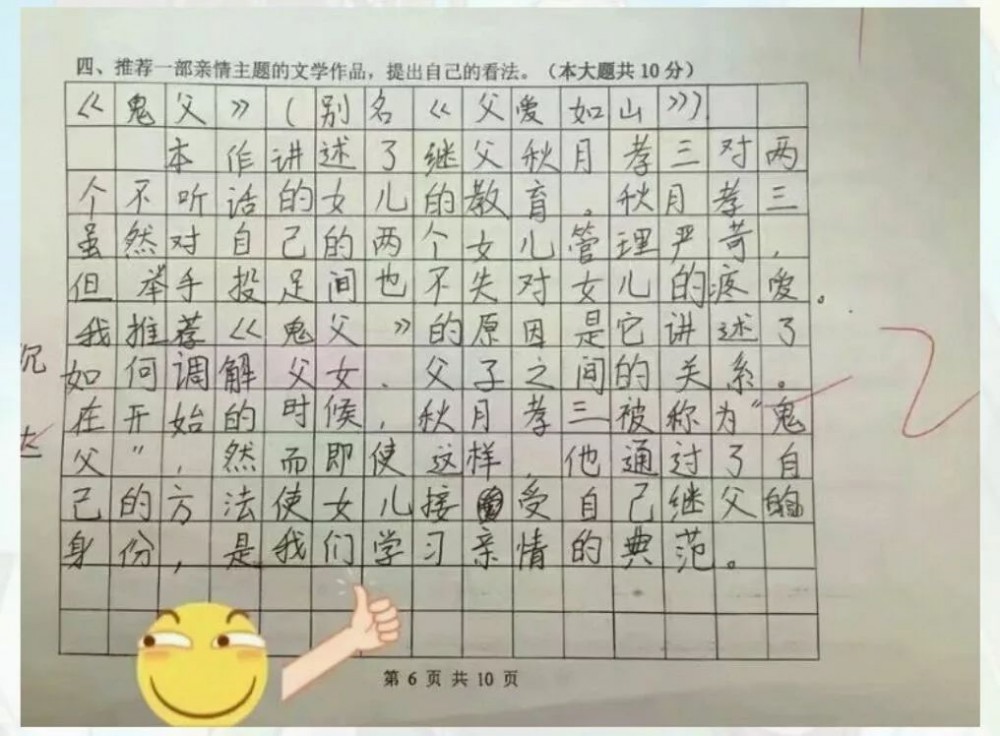 四、推荐一部亲情主题的文学作品，提出自己的看法。（本大题共10分）
《鬼父》(别名《父爱如山》)
本作讲述了继父秋月孝三对两
个不听话的女儿的教育。秋月孝三
虽然对自己的两个女儿管理严苛，
但举手投足间也不失对女儿的疼爱。
我推荐《鬼父》的原因是它讲述了
如何调解父女、父子之间的关系。
在开始的时候，秋月孝三被称为"鬼
父"，然而即使这样，他通过了自
己的方法使女儿接受自己继父的
身份，是我们学习亲情的典范。
第 6 页 共 10 页